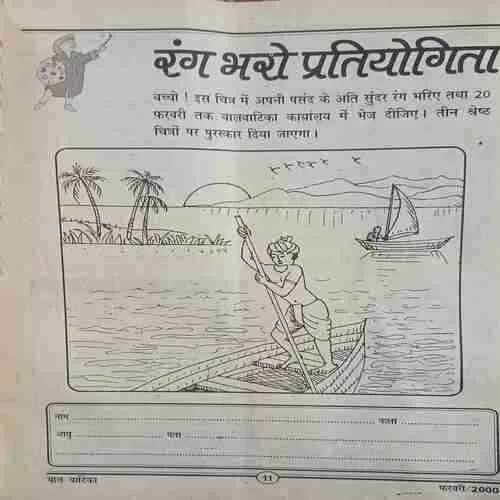 रंग भरो प्रतियोगिता
बच्चो ! इस चित्र में अपनी पसंद के अति सुंदर रंग भरिए तथा 20
फरवरी तक बालवाटिका कार्यालय में भेज दीजिए। तीन श्रेष्ठ
चित्रों पर पुरस्कार दिया जाएगा।
नाम ........ कक्षा ........
आयु ........ पता ........
बाल वाटिका
11
फरवरी/2000